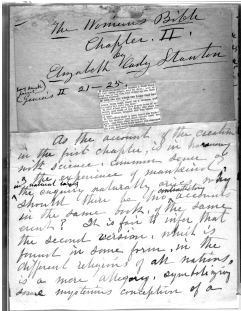 The Woman's Bible
Chapter II.
by
Elizabeth Cady Stanton
Genesis II 21–25.
As the account of the creation
in the first chapter, is in harmony
with science, common sense, &
the experience of mankind in
natural laws,
the enquiry naturally arises, why
should there be two contradictory accounts
in the same book, of the same
event? It is fair to infer that
the second version, which is
found in some form, in the
different religions of all nations,
is a mere allegory, symbolizing
some mysterious conception of a